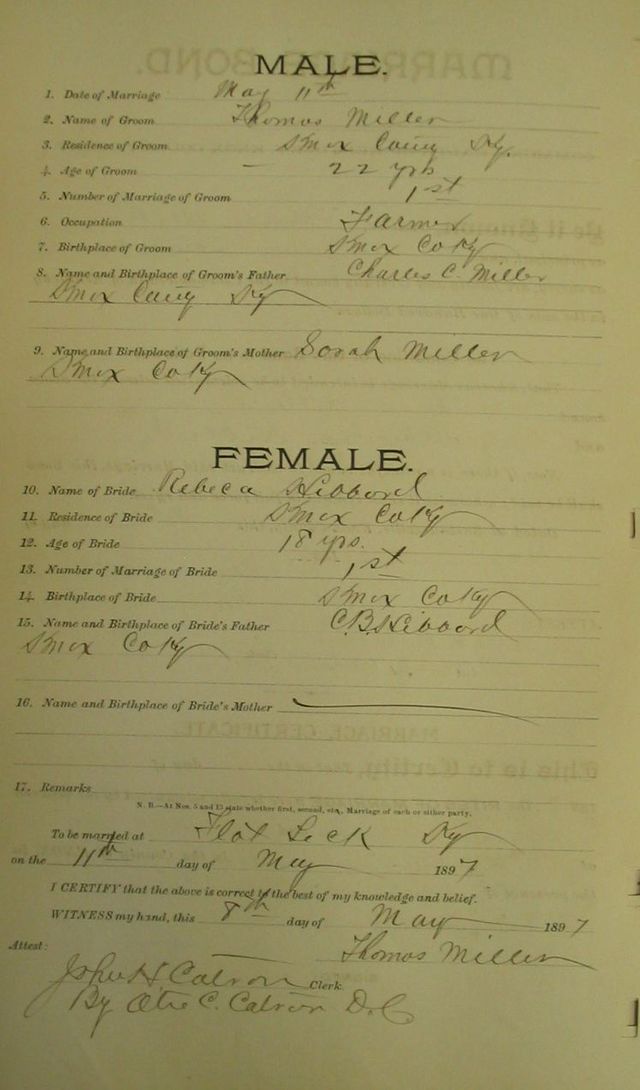 MALE.
1. Date of Marriage May 11th
2. Name of Groom Thomas Miller
3. Residence of Groom Knox Couny Ky.
4. Age of Groom 22 yrs
5. Number of Marriage of Groom 1st
6. Occupation Farmer
7. Birthplace of Groom Knox Co Ky
8. Name and Birthplace of Groom's Father Charles C. Miller
Knox Couny Ky
9. Name and Birthplace of Groom's Mother Sarah Miller
Knox Co Ky
FEMALE.
10. Name of Bride Rebeca Hibbard
11. Residence of Bride Knox Co Ky
12. Age of Bride 18 yrs.
13. Number of Marriage of Bride 1st
14. Birthplace of Bride Knox Co Ky
15. Name and Birthplace of Bride's Father C.B. Hibbard
Knox Co Ky
16. Name and Birthplace of Bride's Mother
17. Remarks
N. B.—At Nos. 5 and 13 state whether first, second, etc., Marriage of each or either party.
To be married at Flat Lick Ky
on the 11th day of May 1897
I CERTIFY that the above is correct to the best of my knowledge and belief.
WITNESS my hand, this 8th day of May 1897
Thomas Miller
Attest:
John H Catron Clerk
By C. Catron D.C